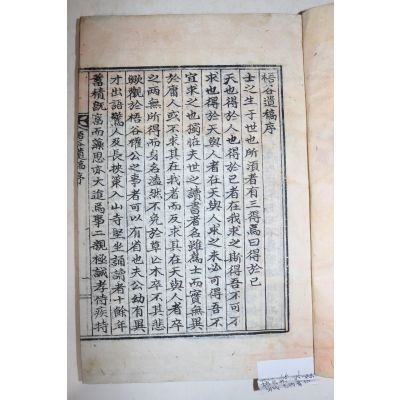 梧谷遺稿序
士之生于世也所須者有三得焉曰得於己
天也得於人也得於己者在我求之斯得吾不可不
求也得於天與人者在天與人求之未必可得吾不
宜求之也獨恠夫世之讀書者名雖爲士而實無異
於庸人或不求其在我者而反求其在天與人者卒
之兩無所得而身名溘然不免於草亡木卒不其悲
歟觀於梧谷權公之事者可以有省也夫公幼有異
才出語驚人及長挾策入山寺堅坐誦讀者十餘年
蓄積旣富而藻思亦大進焉事二親極誠孝侍疾持
梧谷遺稿序